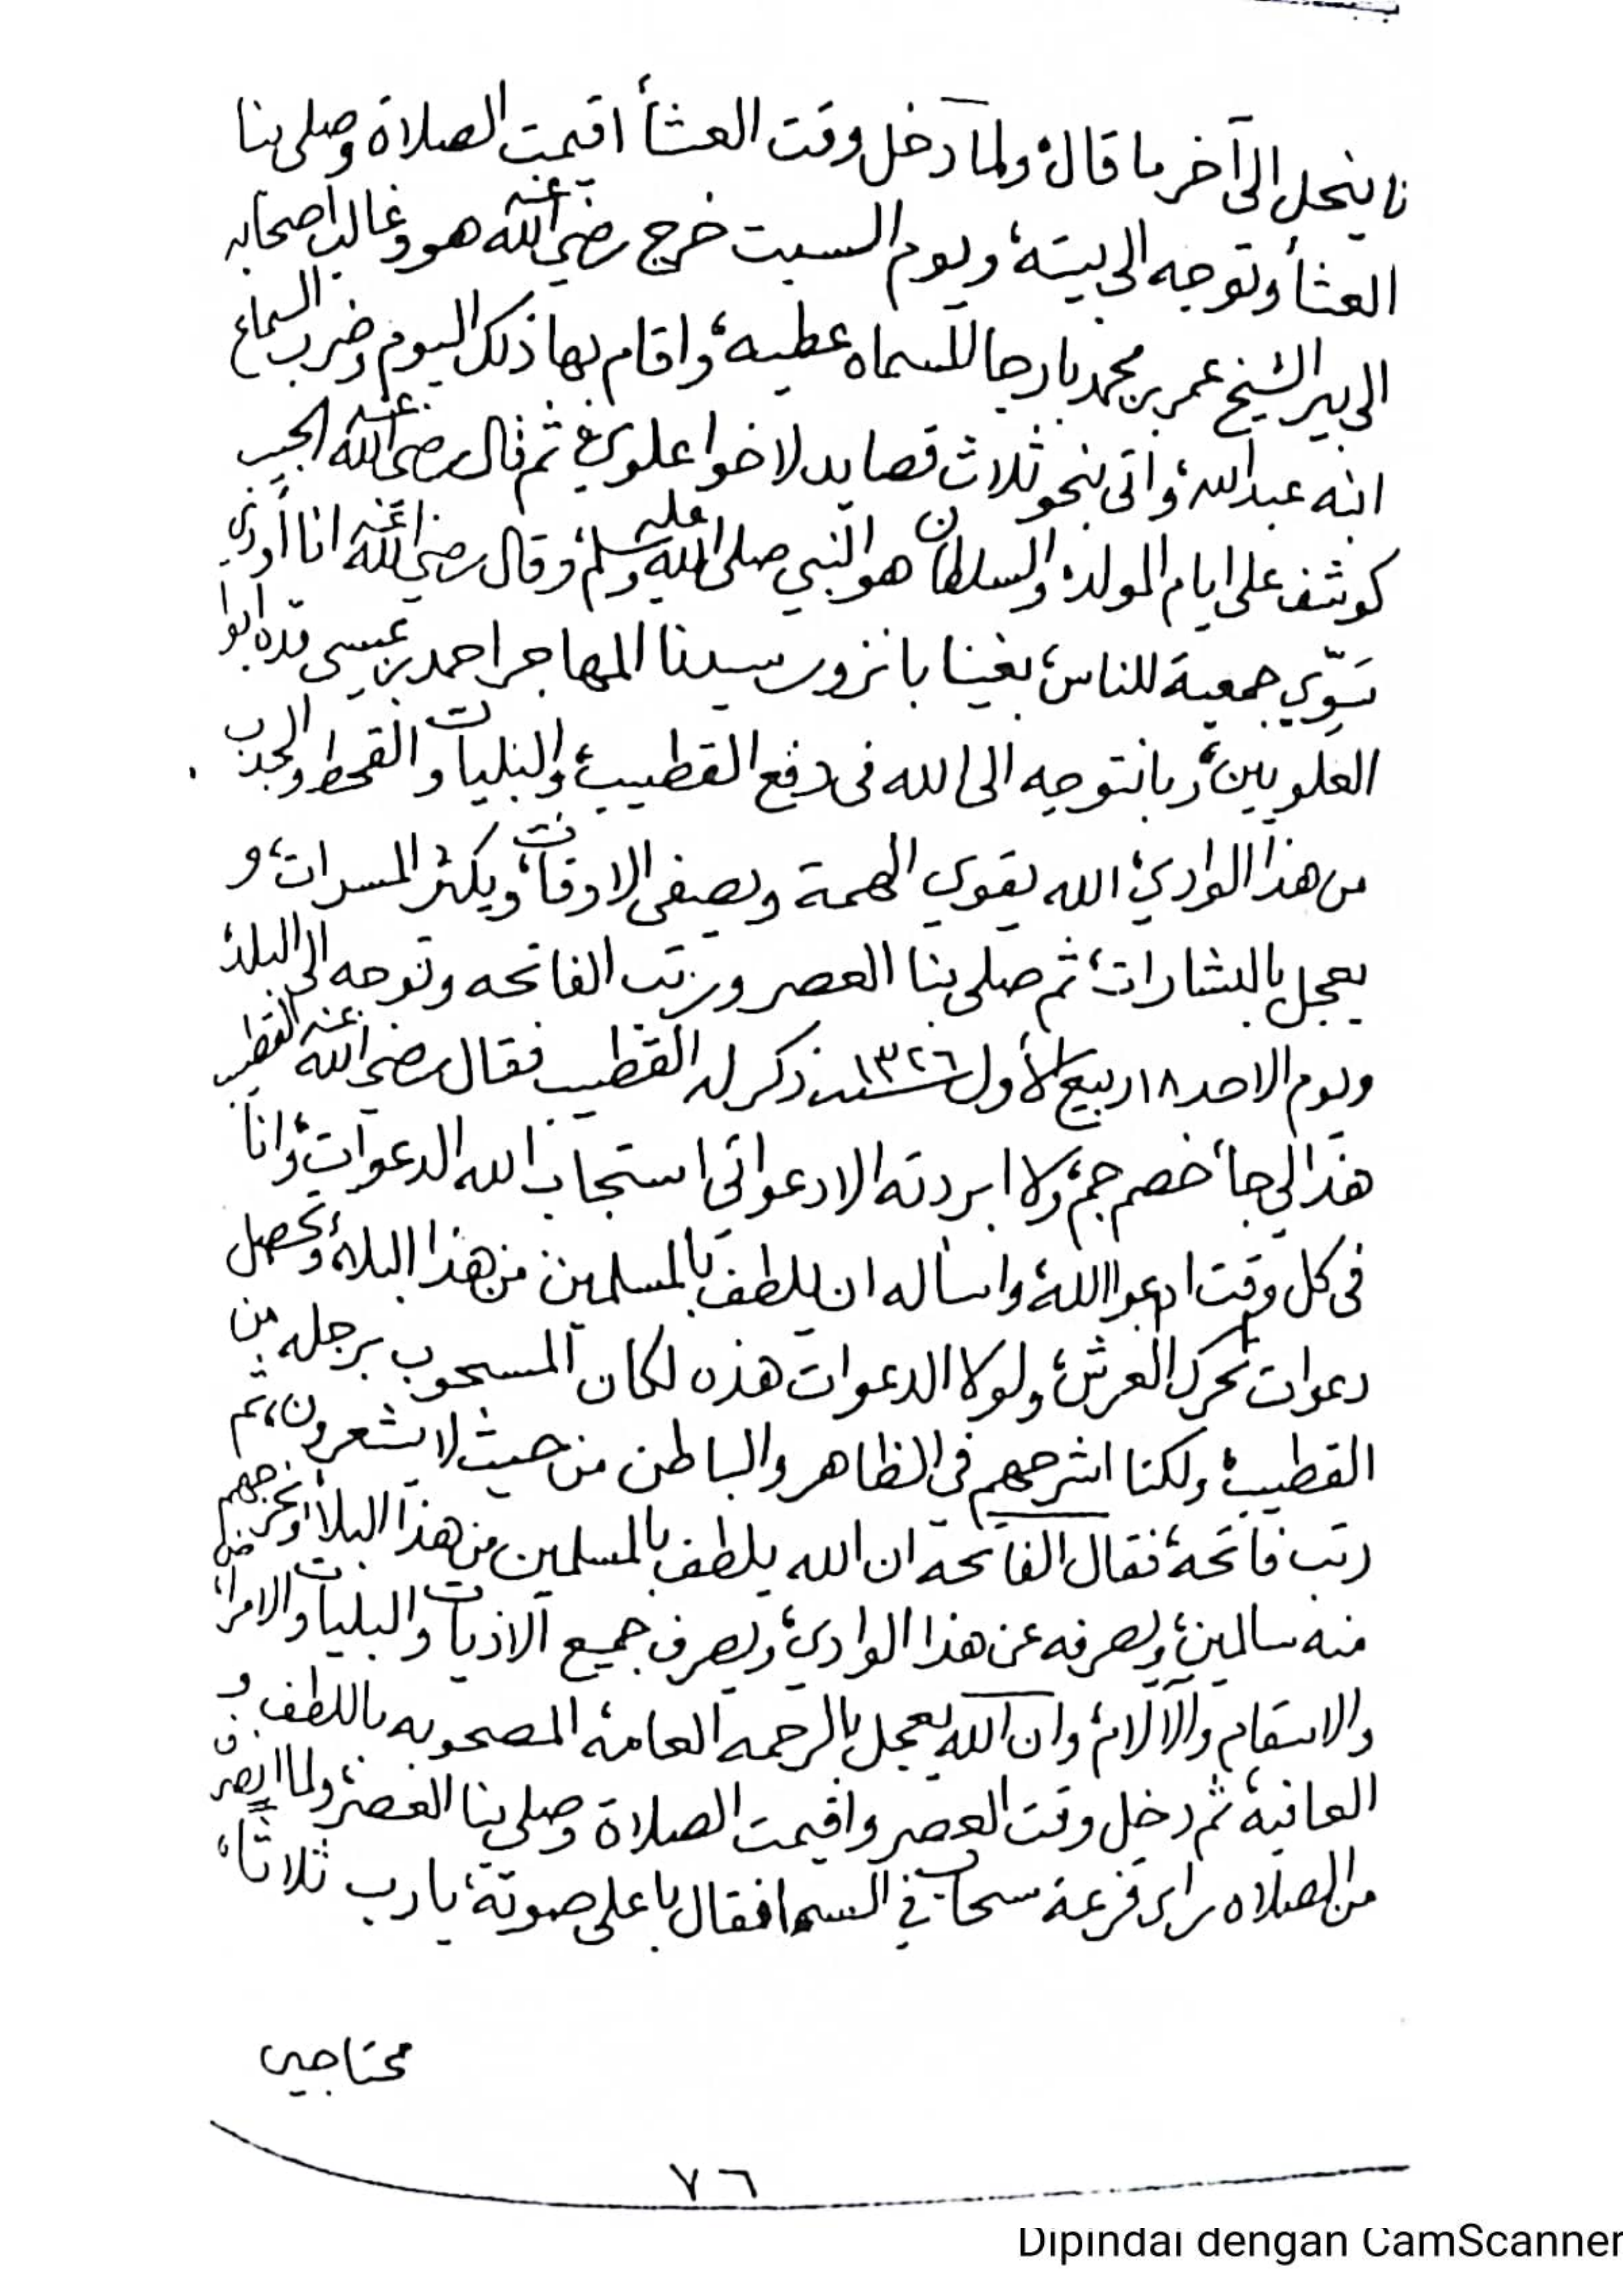 نا ينحل الى آخر ما قال، ولما دخل وقت العشأ اقيمت الصلاة وصلى بنا
العشأ وتوجه الى بيته، ويوم السبت خرج رضي الله عنه هو وغالب اصحابه
الى بير الشيخ عمر بن محمد بارجا المسماه عطيه، واقام بها ذلك اليوم وضرب السماع
ابنه عبدالله، واتى بنحو ثلاث قصايد لاخوا علوي، ثم قال رضي الله عنه الحبيب
كوشف على ايام المولد، والسلطان هو النبي صلى الله عليه وسلم، وقال رضي الله عنه انا أودي
سَوّي جمعية للناس، بغينا بانزور سيدنا المهاجر احمد بن عيسى ابوا
العلويين، وبانتوجه الى الله فى دفع القطيب، والبليات والقحط والجدب
من هذا الوادي، الله يقوي الهمة ويصفى الاوقات، ويكثر المسرات، و
يعجل بالبشارات، ثم صلى بنا العصر ورتب الفاتحه وتوجه الى البلد،
ويوم الاحد ١٨ ربيع الأول سنة ١٣٢٦ ذكر له القطيب فقال رضي الله عنه القطيب
هذا لي جأ خصم جم، ولا ابردته الا دعواتى استجاب الله الدعوات، وانا
فى كل وقت ادعوا الله، واساله ان يلطف بالمسلمين من هذا البلاء، وتحصل
دعوات تحرك العرش، ولولا الدعوات هذه لكان المسحوب برجله من
القطيب، ولكنا اشرحهم في الظاهر والباطن من حيث لا يشعرون، ثم
رتب فاتحة، فقال الفاتحه ان الله يلطف بالمسلمين من هذا البلاء، ونخرجهم
منه سالمين، ويصرفه عن هذا الوادي، ويصرف جميع الاذيات والبليات والامراض
والاسقام والآلام، وان الله يعجل بالرحمه العامة المصحوبه باللطف و
العافية، ثم دخل وقت العصر واقيمت الصلاة وصلى بنا العصر، ولما انصرف
من الصلاه راى قزعة سحاب في السما فقال باعلى صوته، يا رب ثلاثاً،
محتاجين
٧٦
Dipindai dengan CamScanner